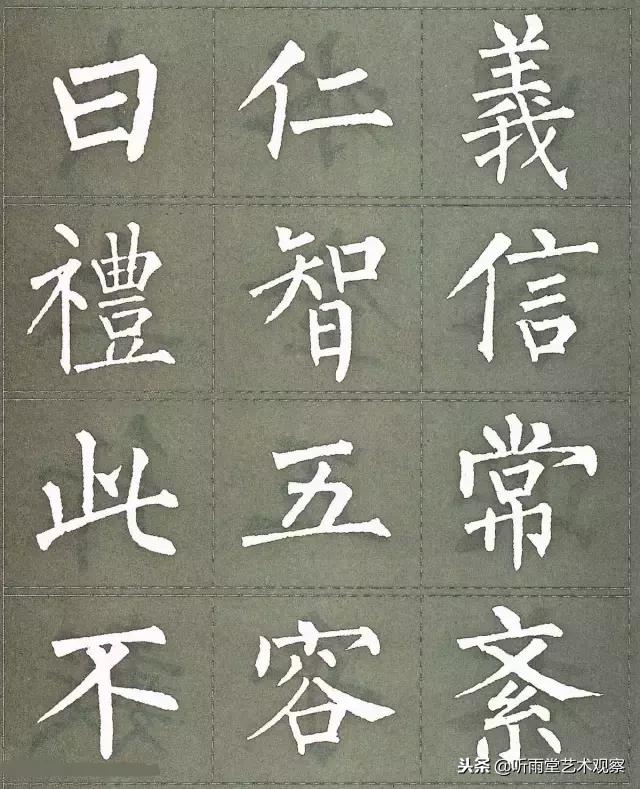 曰仁義
禮智信
此五常
不容紊
头条 @听雨堂艺术观察